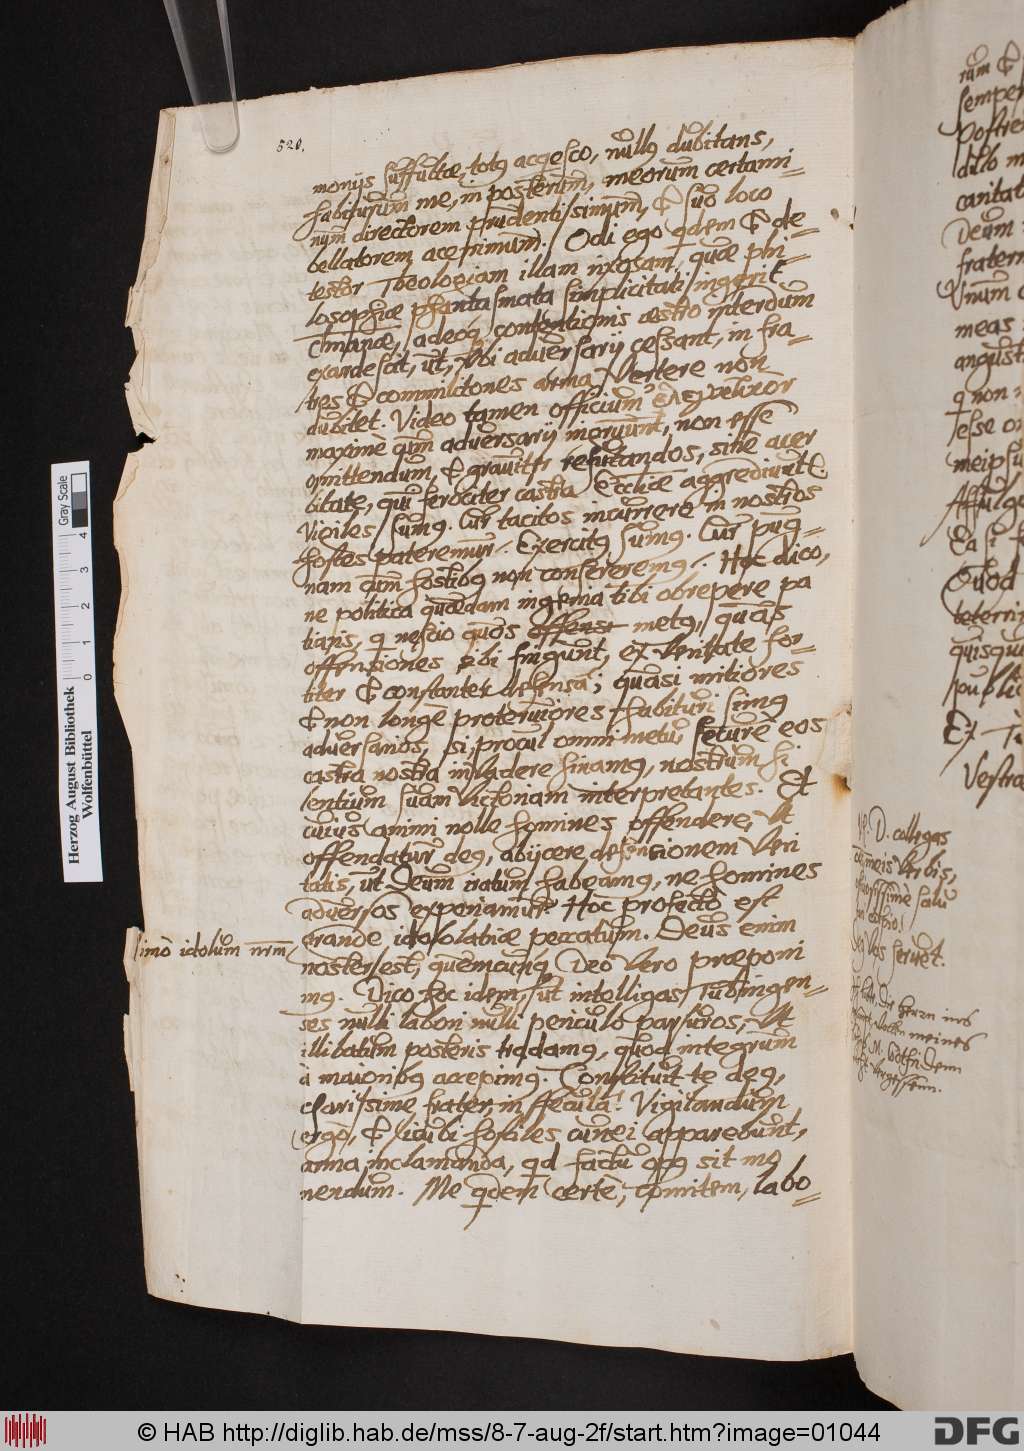 520.
monijs suffultae, totus acqesco, nullus dubitans,
habiturum me, in posterum, meorum certami-
num directorem prudentissimum, & suo loco
bellatorem acerrimum. Odi ego qdem & de-
testor Theologiam illam rixosam, quae phi-
losophiae phantasmata simplicitati ingerit
Christianae, adeoq contentionis aestro interdum
exardescit, ut, ubi adversarij cessant, in fra-
tres & commilitones arma vertere non
dubitet. Video tamen officium
maximè qum adversarij ingruunt, non esse
omittendum, & graviter refutandos, sine acer
bitate, qui ferociter castra Ecclicae aggrediuntr
Vigiles sumus. Cur tacitos incurrere in nostros
hostes pateremur. Exercitus sumus. Cur pug-
nam cum hostibus non consereremus. Hoc dico,
ne politica quaedam ingenia tibi obrepere pa
tiaris, q nescio quos metus, quasq
offensiones sibi fingunt, ex veritate for-
titer & constanter defensa; quasi mitiores
& non longè proterviores habituri simus
adversarios, si, procul omni metu, securè eos
castra nostra invadere sinamus, nostrum si
lentium suam victoriam interpretantes. Et
cuius animi nolle homines offendere, ut
offendatur deus, abijcere defensionem veri
tatis, ut Deum iratum habeamus, ne homines
adversos experiamur? Hoc profectò est
grande idololatriae peccatum. Deus enim
imò idolum nrm
noster est, quemcunq Deo vero praeponi
mus. Dico hoc idem, ut intelligas Tubingen-
ses nulli labori nulli periculo parsuros, ut
illibatum posteris tradamus, quod integrum
à maioribus accepimus. Constituit te deus,
clarissime frater, in specula! Vigilandum
ergò, & sicubi hostiles cunei apparebunt,
arma inclamanda, qd factu opus sit mo
nendum. Me qdem certè, comitem, labo-
rum &
semper
Postre
dub m
caritat
Deum
fratern
Unum
meas
angust
q non
esse
meipsu
Affulg
Ea si
Quod
teterri
quisqui
public
Ex Tu
Vestra
D. collegas
meis verbis,
salu
Vos servet.
Herrn
meines
M.
Herzog August Bibliothek
Wolfenbüttel
0 1 2 3 4
Gray Scale
© HAB http://diglib.hab.de/mss/8-7-aug-2f/start.htm?image=01044
DFG